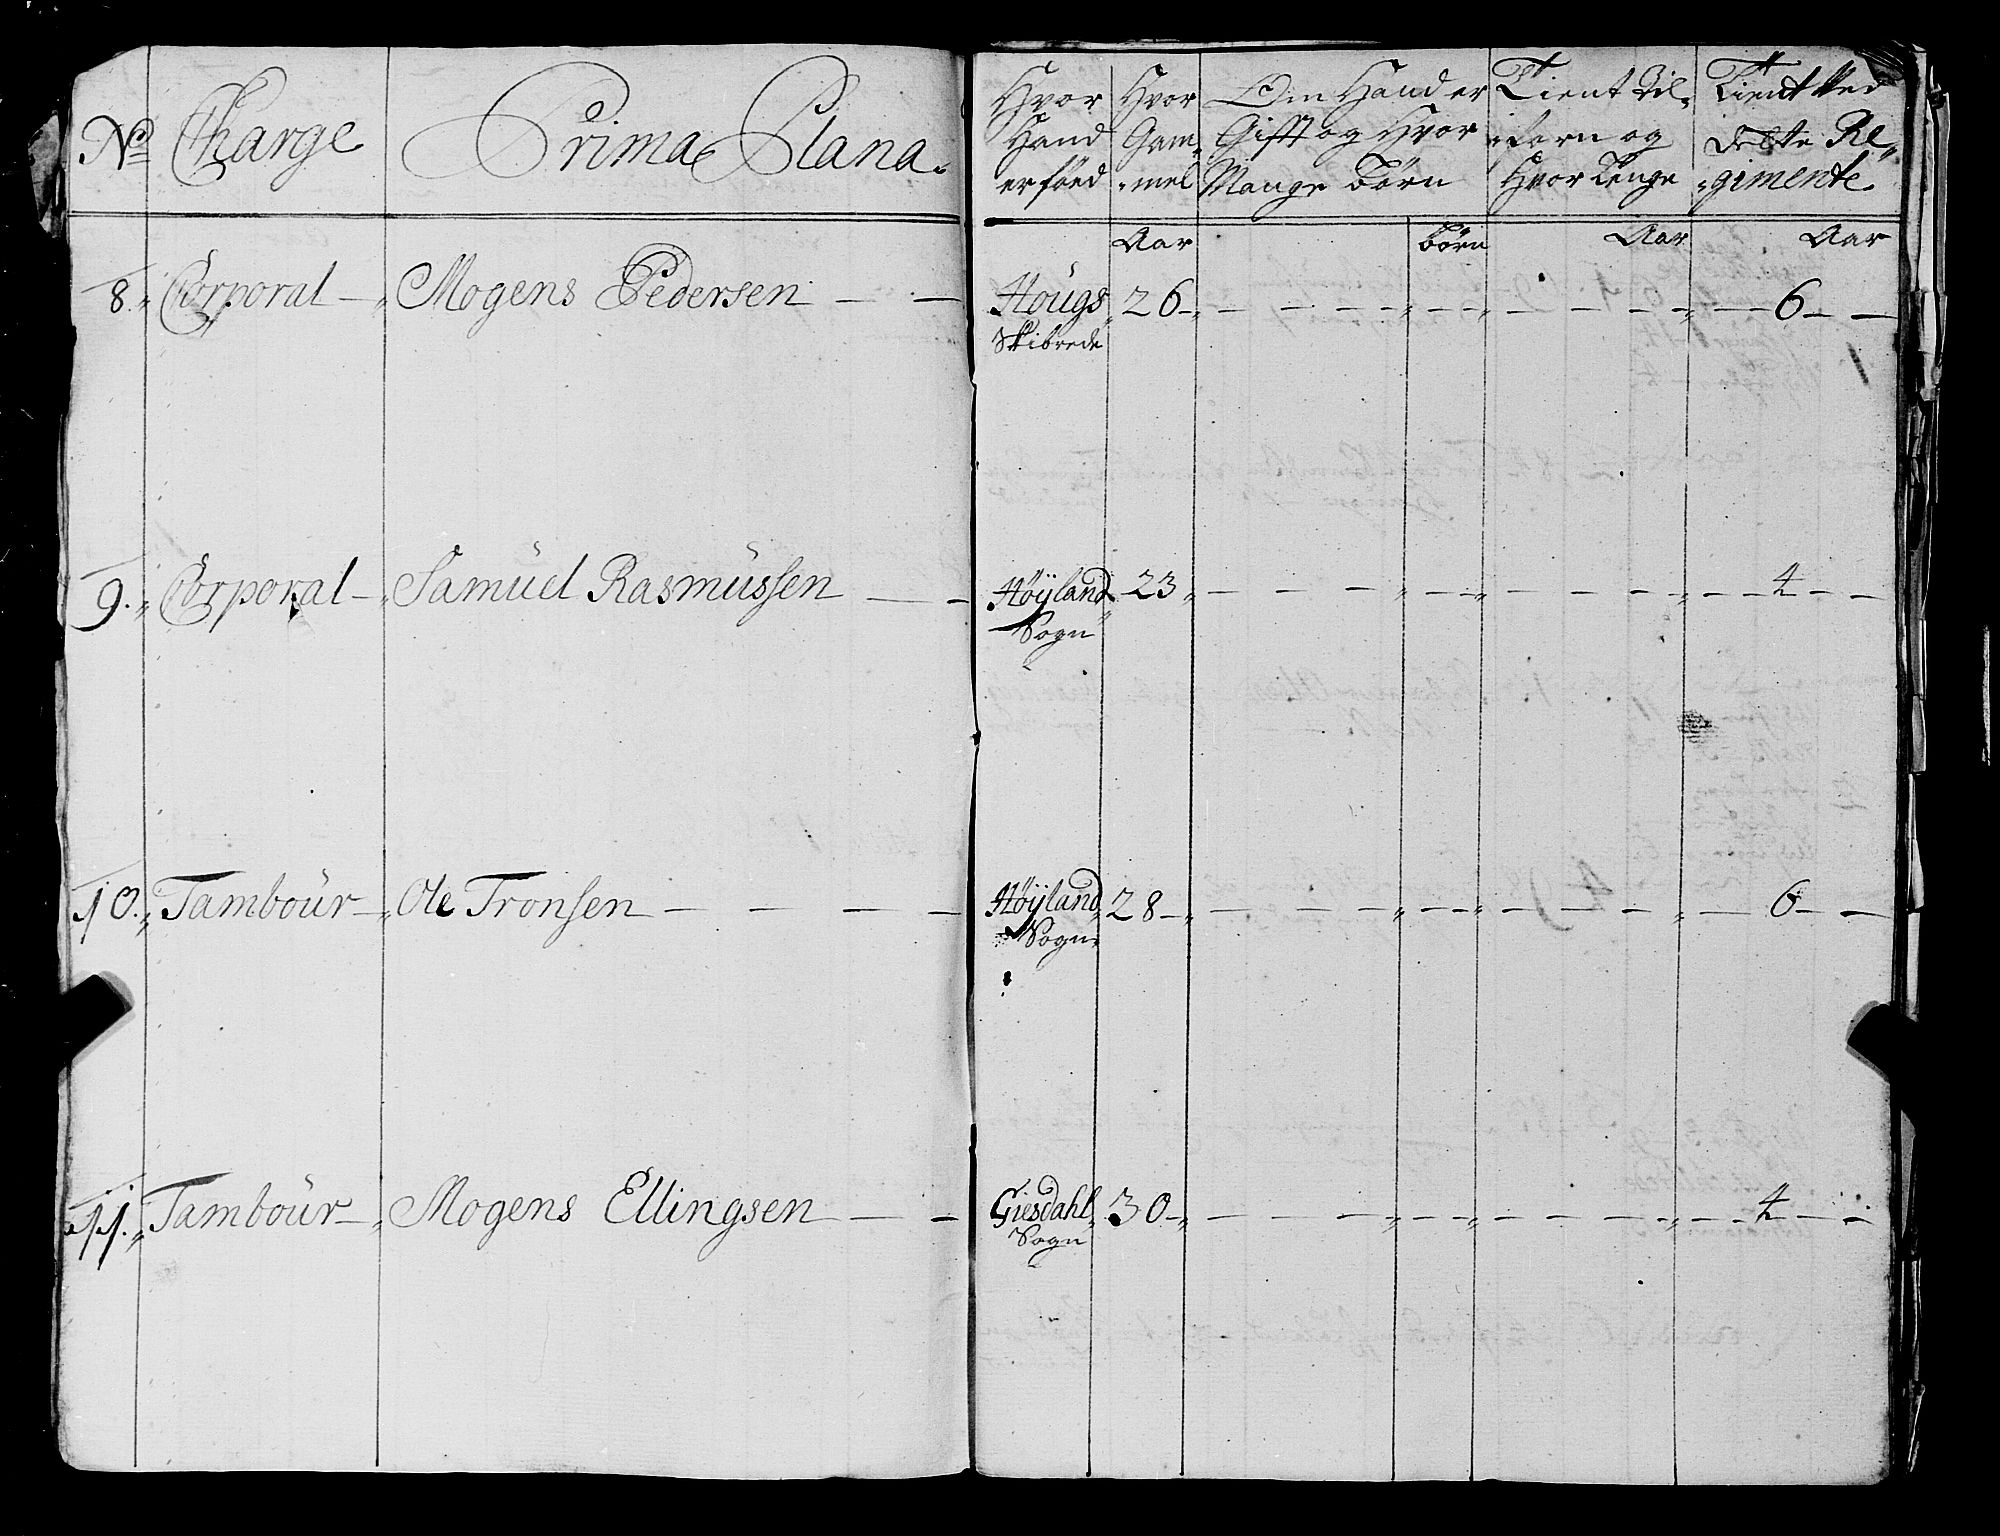 No Charge Prima Plana.
Hvor Hand er föed
Hvor Gam-mel
Om Hand er Gift og Hvor Mange börn
Tient Til-forn og Hvor Lenge
Tient Ved dette Re-gimente
Aar börn Aar Aar
8. Corporal Mogens Pedersen Hougs 26 6
Skibrede
9. Corporal Samuel Rasmussen Höÿland 23 4
Sogn
10. Tambour Ole Tronsen Höÿland 28 6
Sogn
11. Tambour Mogens Ellingsen Giesdahl 30 4
Sogn